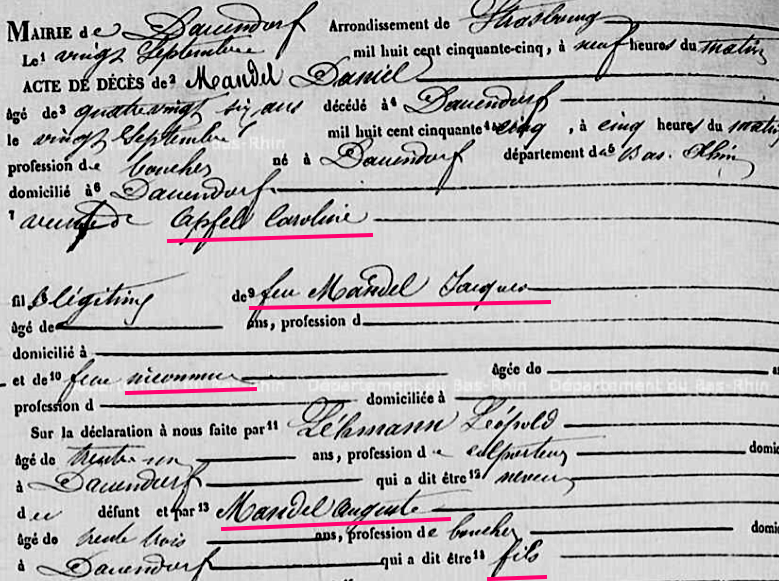 MAIRIE de Dauendorf Arrondissement de Strasbourg
Le¹ vingt Septembre mil huit cent cinquante-cinq, à neuf heures du matin
ACTE DE DÉCÈS de² Mandel Daniel
âgé de³ quatrevingt six ans décédé à⁴ Dauendorf
le vingt Septembre mil huit cent cinquante cinq, à cinq heures du matin
profession de boucher né à Dauendorf département du⁵ Bas-Rhin
domicilié à⁶ Dauendorf
⁷ veuf de Apfel Caroline
fils légitime de⁹ feu Mandel Jacques
âgé de ans, profession d
domicilié à
et de¹⁰ feue inconnue Âgée de
Département du Bas-Rhin
profession d domiciliée à
Sur la déclaration à nous faite par¹¹ Léhmann Léópold
âgé de trente un ans, profession de colporteur domic
à Dauendorf qui a dit être¹² neveu
du défunt et par¹³ Mandel Auguste
âgé de trente trois ans, profession de boucher domic
à Dauendorf qui a dit être¹⁴ fils